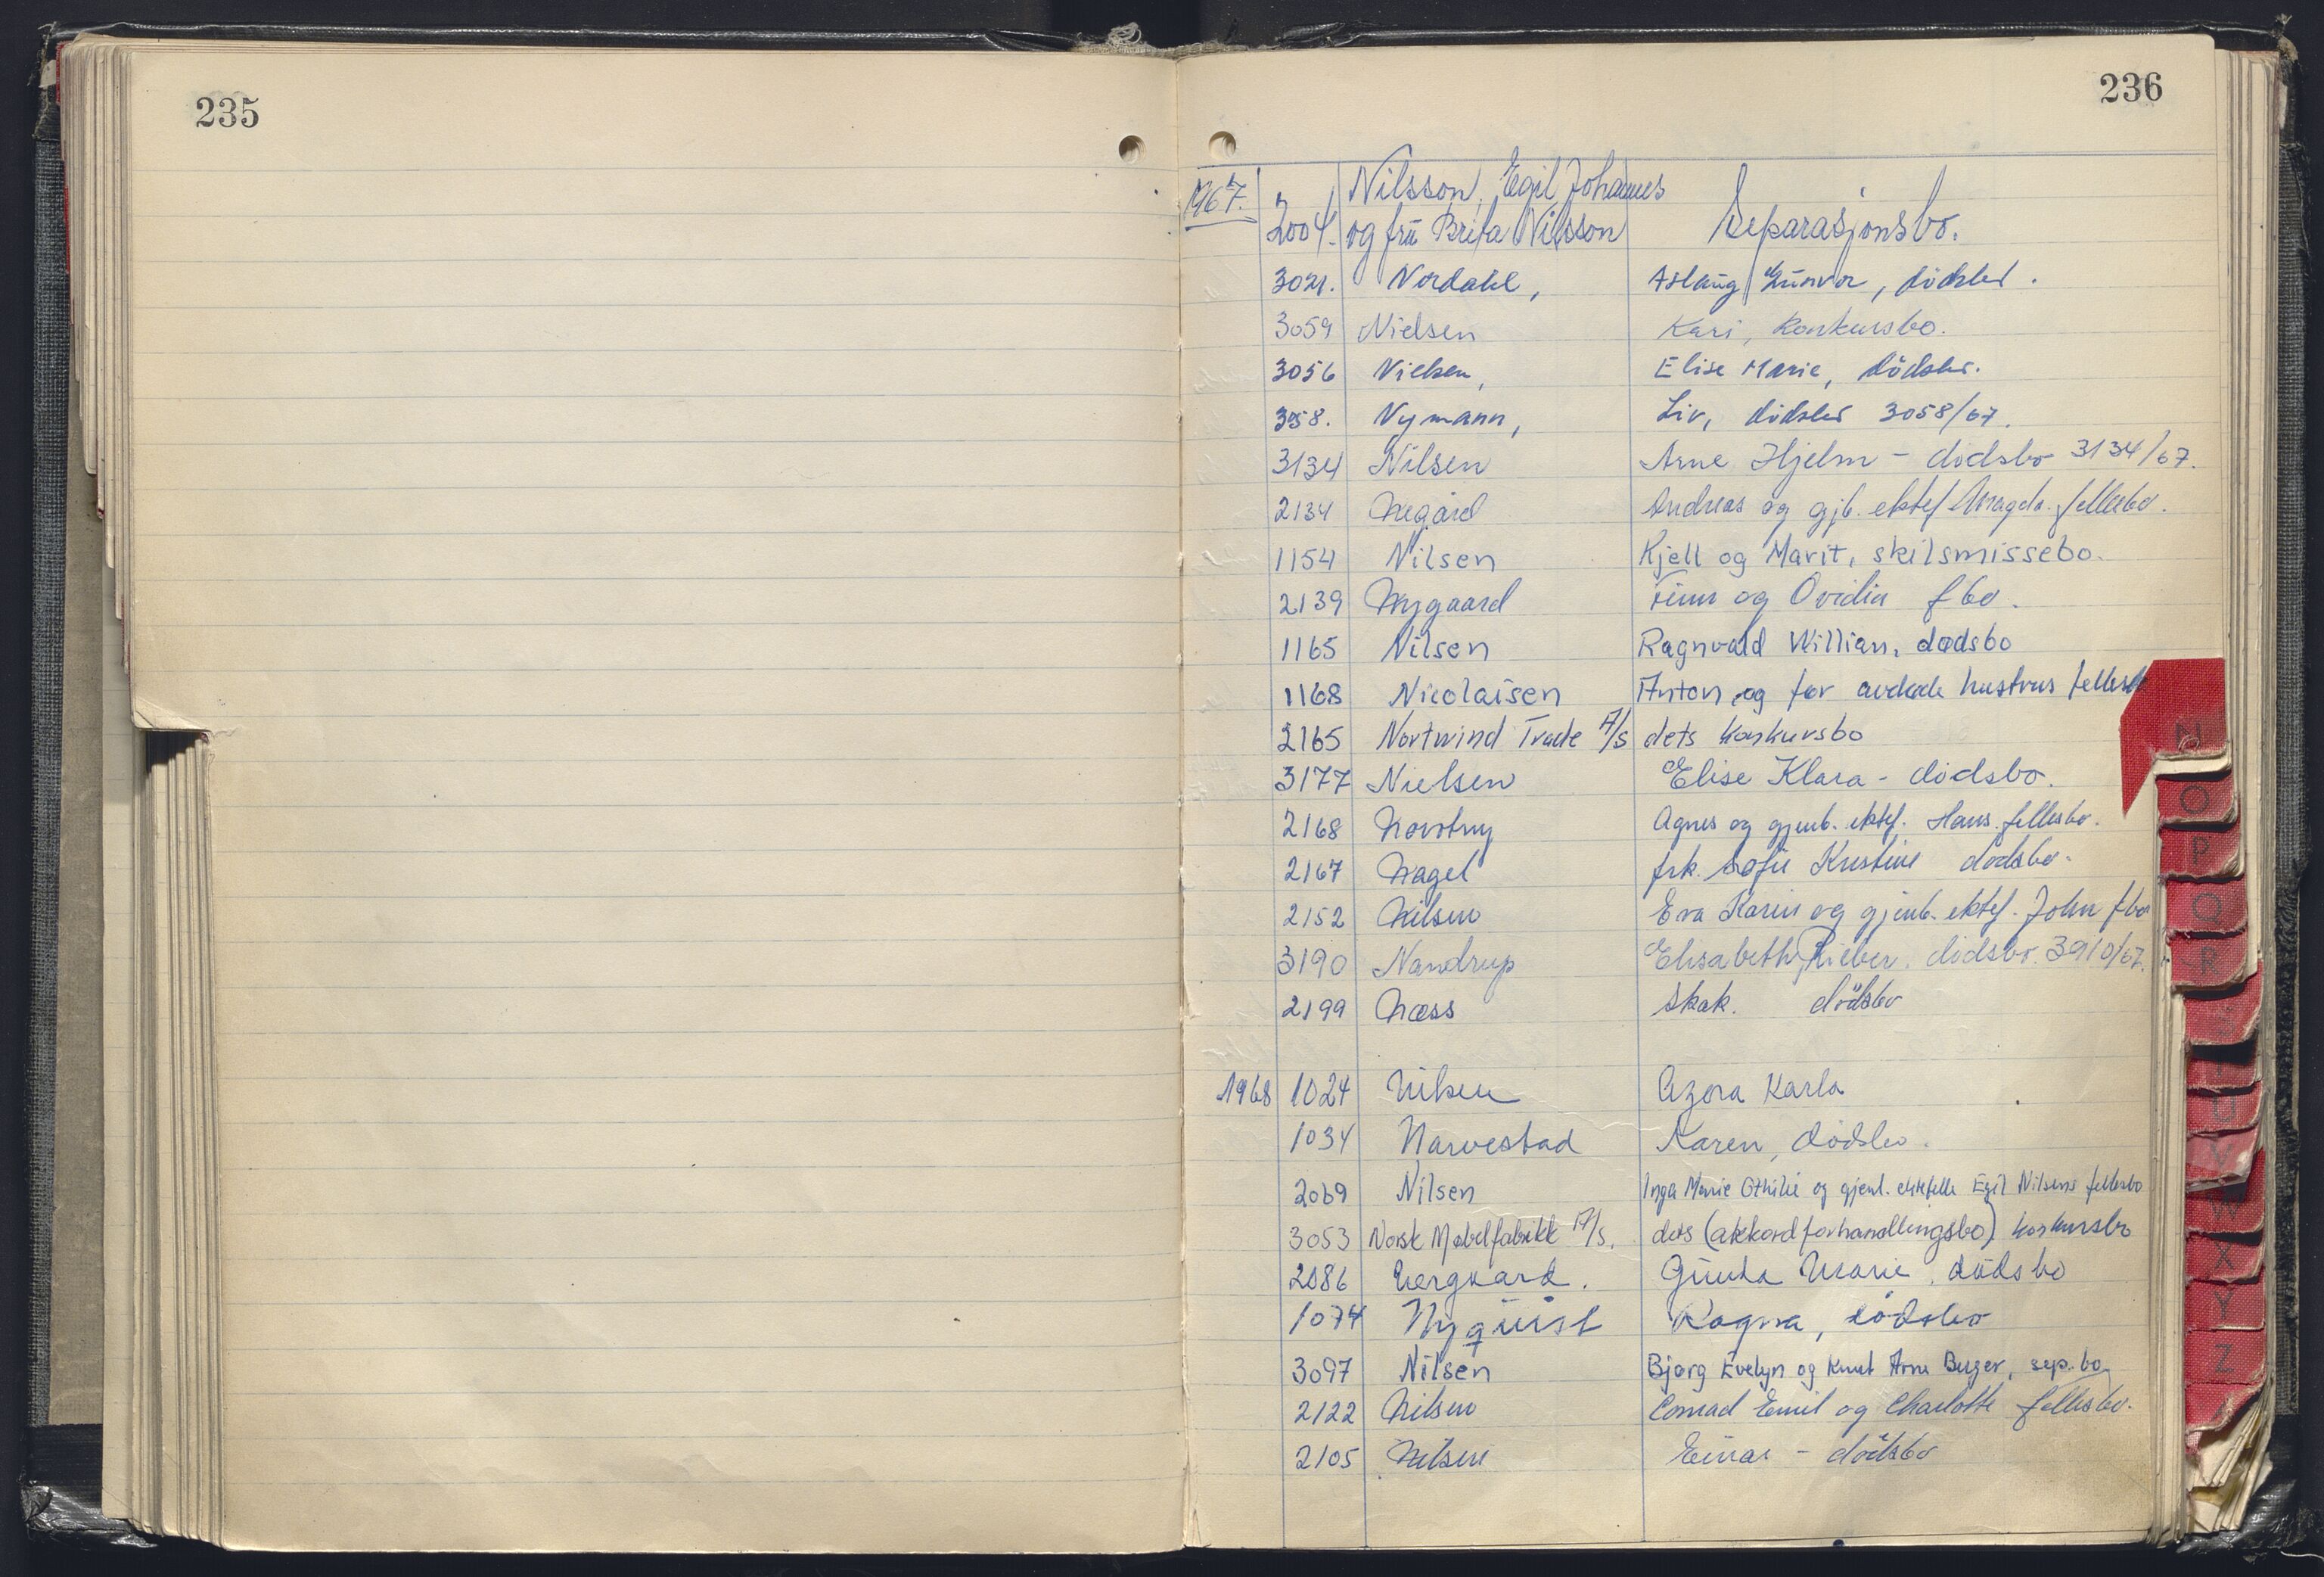 235
236
1967. Nilsson, Egil Johannes
2004. og frü Brita Nilsson Separasjonsbo.
3021. Nordahl, Aslaug Gunvor, dödsbo.
3059 Nielsen Kari, Konkursbo.
3056 Nielsen, Elise Marie, dödsbo.
3058. Nymann, Liv, dödsbo 3058/67.
3134 Nilsen Arne Hjelm - dödsbo 3134/67.
2134 Negård Andreas og gjb. ektef Magda. fellesbo.
1154 Nilsen Kjell og Marit, skilsmissebo.
2139 Nygaard Finn og Ovidia fbo.
1165 Nilsen Ragnvald William, dødsbo
1168 Nicolaisen Anton og før avdøde hustrus
2165 Nortwind Trade A/S dets konkursbo
3177 Nielsen Elise Klara - dödsbo.
2168 Novotny Agnes og gjenl. ektef. Hans. fellesbo.
2167 Nagel frk. Sofie Kristine dødsbo.
2152 Nilsen Eva Karin og gjenl. ektef. John fbo
3190 Nandrup Elisabeth Rieber. dödsbo. 3910/67.
2199 Næss Skak. dödsbo
1968 1024 Nilsen Azora Karla
1034 Narvestad Karen, dödsbo.
2069 Nilsen Inga Marie Othilie og gjenl. ektefelle Egil Nilsens fellesbo
3053 Norsk Møbelfabrikk A/S. dets (akkordforhandlingsbo) konkursbo
2086 Nergaard. Marie, dödsbo
1074 Nyquist Ragna, dödsbo
3097 Nilsen Bjørg Evelyn og Knut Arne Berger, sep.bo
2122 Nilsen Conrad Emil og Charlotte fellesbo.
2105 Nilsen Einar - dödsbo
N
O
P
Q
R
S
T
U
V
W
X
Y
Z